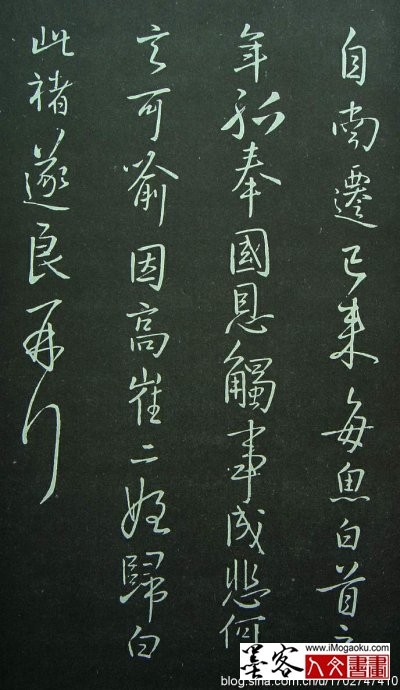 自南遷已來每魚白首之
年孤奉國恩觸事成悲何
言可喻因高崔二姪歸白
此褚遂良再行
墨客
www.iMogaoku.com
人文書畫
blog.sina.com.cn/u/1702747410